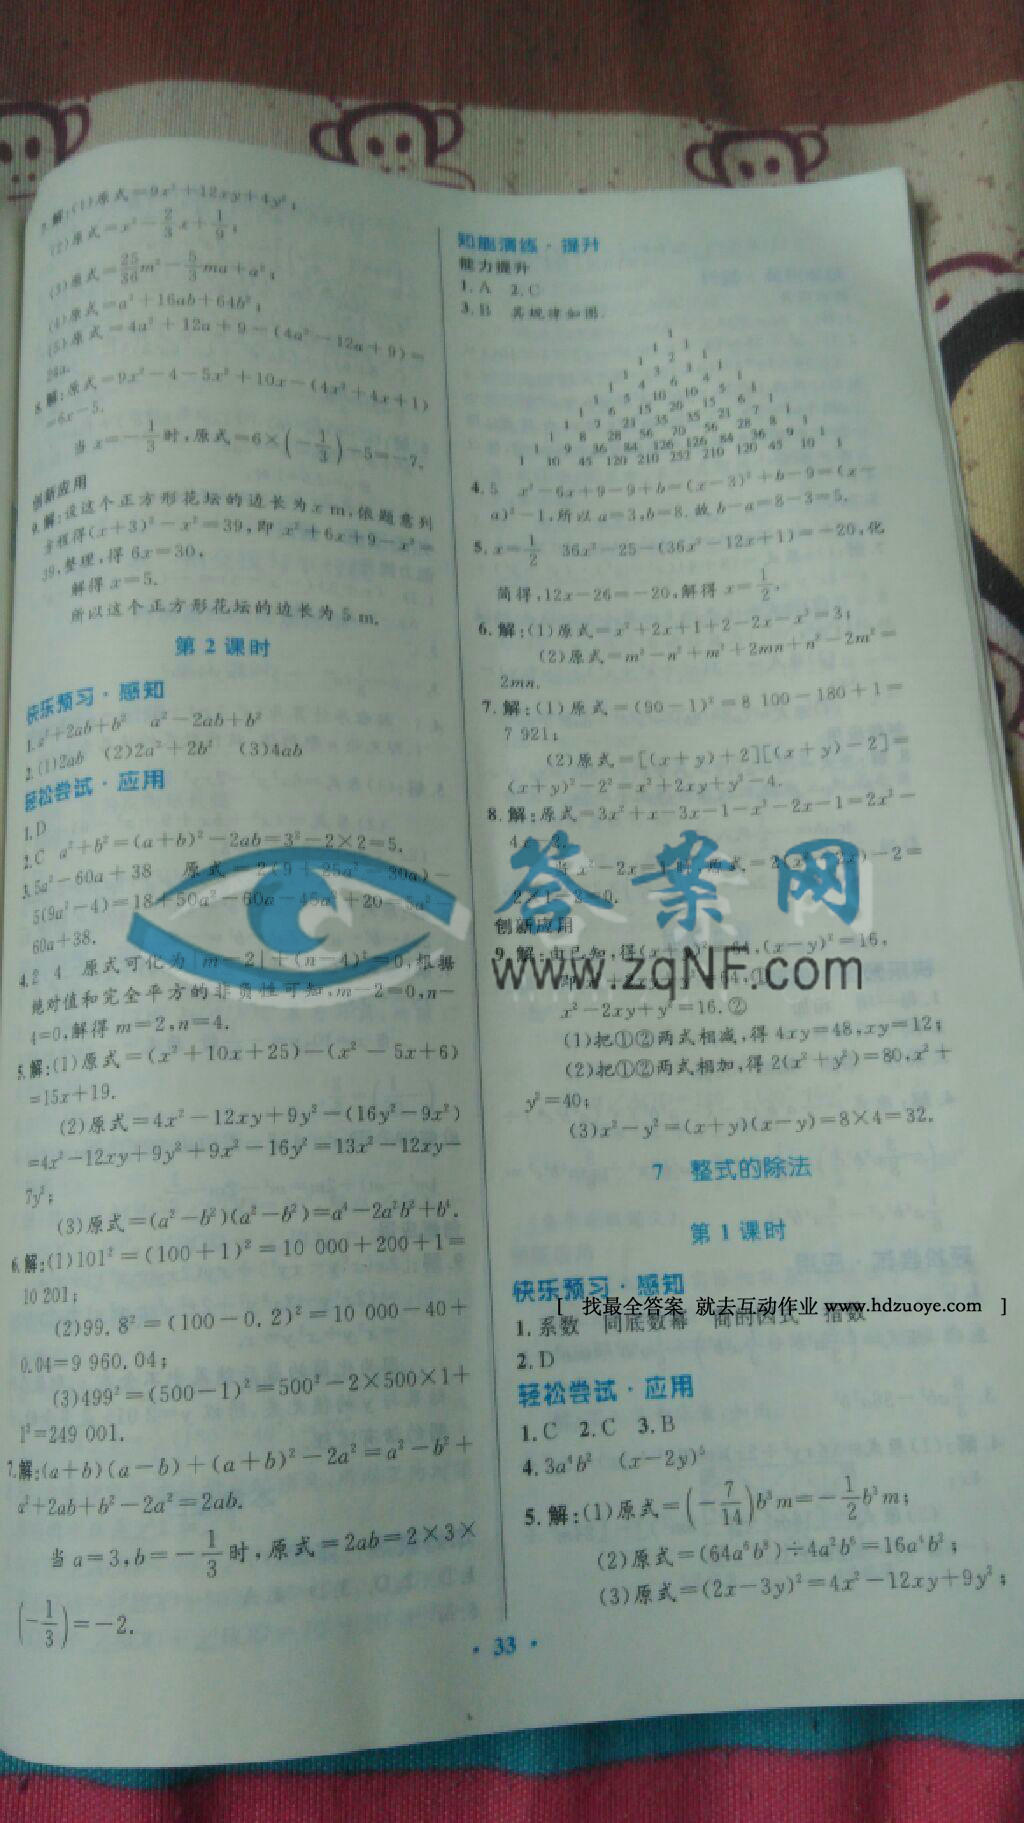 7.解:(1)原式=9x²+12xy+4y²;
(2)原式=x²-2/3x+1/9;
(3)原式=25/36m²-5/3ma+a²;
(4)原式=a²+16ab+64b²;
(5)原式=4a²+12a+9-(4a²-12a+9)=
24a.
8.解:原式=9x²-4-5x²+10x-(4x²+4x+1)
=6x-5.
当x=-1/3时,原式=6×(-1/3)-5=-7.
创新应用
9.解:设这个正方形花坛的边长为x m,依题意列
方程得(x+3)²-x²=39,即x²+6x+9-x²=
39,整理,得6x=30,
解得x=5.
所以这个正方形花坛的边长为5 m.
第2课时
快乐预习·感知
1.a²+2ab+b² a²-2ab+b²
2.(1)2ab (2)2a²+2b² (3)4ab
轻松尝试·应用
1.D
2.C a²+b²=(a+b)²-2ab=3²-2×2=5.
3.5a²-60a+38 原式=2(9+25a²-30a)-
5(9a²-4)=18+50a²-60a-45a²+20=5a²-
60a+38.
4.2 4 原式可化为|m-2|+(n-4)²=0,根据
绝对值和完全平方的非负性可知,m-2=0,n-
4=0,解得m=2,n=4.
5.解:(1)原式=(x²+10x+25)-(x²-5x+6)
=15x+19.
(2)原式=4x²-12xy+9y²-(16y²-9x²)
=4x²-12xy+9y²+9x²-16y²=13x²-12xy-
7y²;
(3)原式=(a²-b²)(a²-b²)=a⁴-2a²b²+b⁴.
6.解:(1)101²=(100+1)²=10 000+200+1=
10 201;
(2)99.8²=(100-0.2)²=10 000-40+
0.04=9 960.04;
(3)499²=(500-1)²=500²-2×500×1+
1²=249 001.
7.解:(a+b)(a-b)+(a+b)²-2a²=a²-b²+
a²+2ab+b²-2a²=2ab.
当a=3,b=-1/3时,原式=2ab=2×3×
(-1/3)=-2.
知能演练·提升
能力提升
1.A 2.C
3.B 其规律如图.
1 1
1 2 1
1 3 3 1
1 4 6 4 1
1 5 10 10 5 1
1 6 15 20 15 6 1
1 7 21 35 35 21 7 1
1 8 28 56 70 56 28 8 1
1 9 36 84 126 126 84 36 9 1
1 10 45 120 210 252 210 120 45 10 1
4.5 x²-6x+9-9+b=(x-3)²+b-9=(x-
a)²-1,所以a=3,b=8.故b-a=8-3=5.
5.x=1/2 36x²-25-(36x²-12x+1)=-20,化
简得,12x-26=-20,解得x=1/2.
6.解:(1)原式=x²+2x+1+2-2x-x²=3;
(2)原式=m²-n²+m²+2mn+n²-2m²=
2mn.
7.解:(1)原式=(90-1)²=8 100-180+1=
7 921;
(2)原式=[(x+y)+2][(x+y)-2]=
(x+y)²-2²=x²+2xy+y²-4.
8.解:原式=3x²+x-3x-1-x²-2x-1=2x²-
4x-2.
当x²-2x=1时,原式=2(x²-2x)-2=
2×1-2=0.
创新应用
9.解:由已知,得(x+y)²=64,(x-y)²=16,
即x²+2xy+y²=64,①
x²-2xy+y²=16.②
(1)把①②两式相减,得4xy=48,xy=12;
(2)把①②两式相加,得2(x²+y²)=80,x²+
y²=40;
(3)x²-y²=(x+y)(x-y)=8×4=32.
7 整式的除法
第1课时
快乐预习·感知
1.系数 同底数幂 商的因式 指数
2.D
轻松尝试·应用
1.C 2.C 3.B
4.3a⁴b² (x-2y)⁵
5.解:(1)原式=(-7/14)b³m=-1/2b³m;
(2)原式=(64a⁶b⁸)÷4a²b⁶=16a⁴b²;
(3)原式=(2x-3y)²=4x²-12xy+9y²;
·33·
答案网
www.zqNF.com
[ 找最全答案 就去互动作业 www.hdzuoye.com ]